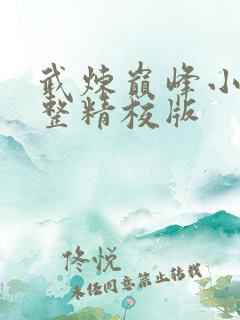 武炼巅峰小
整精校版
佟悦
未经同意禁止转载